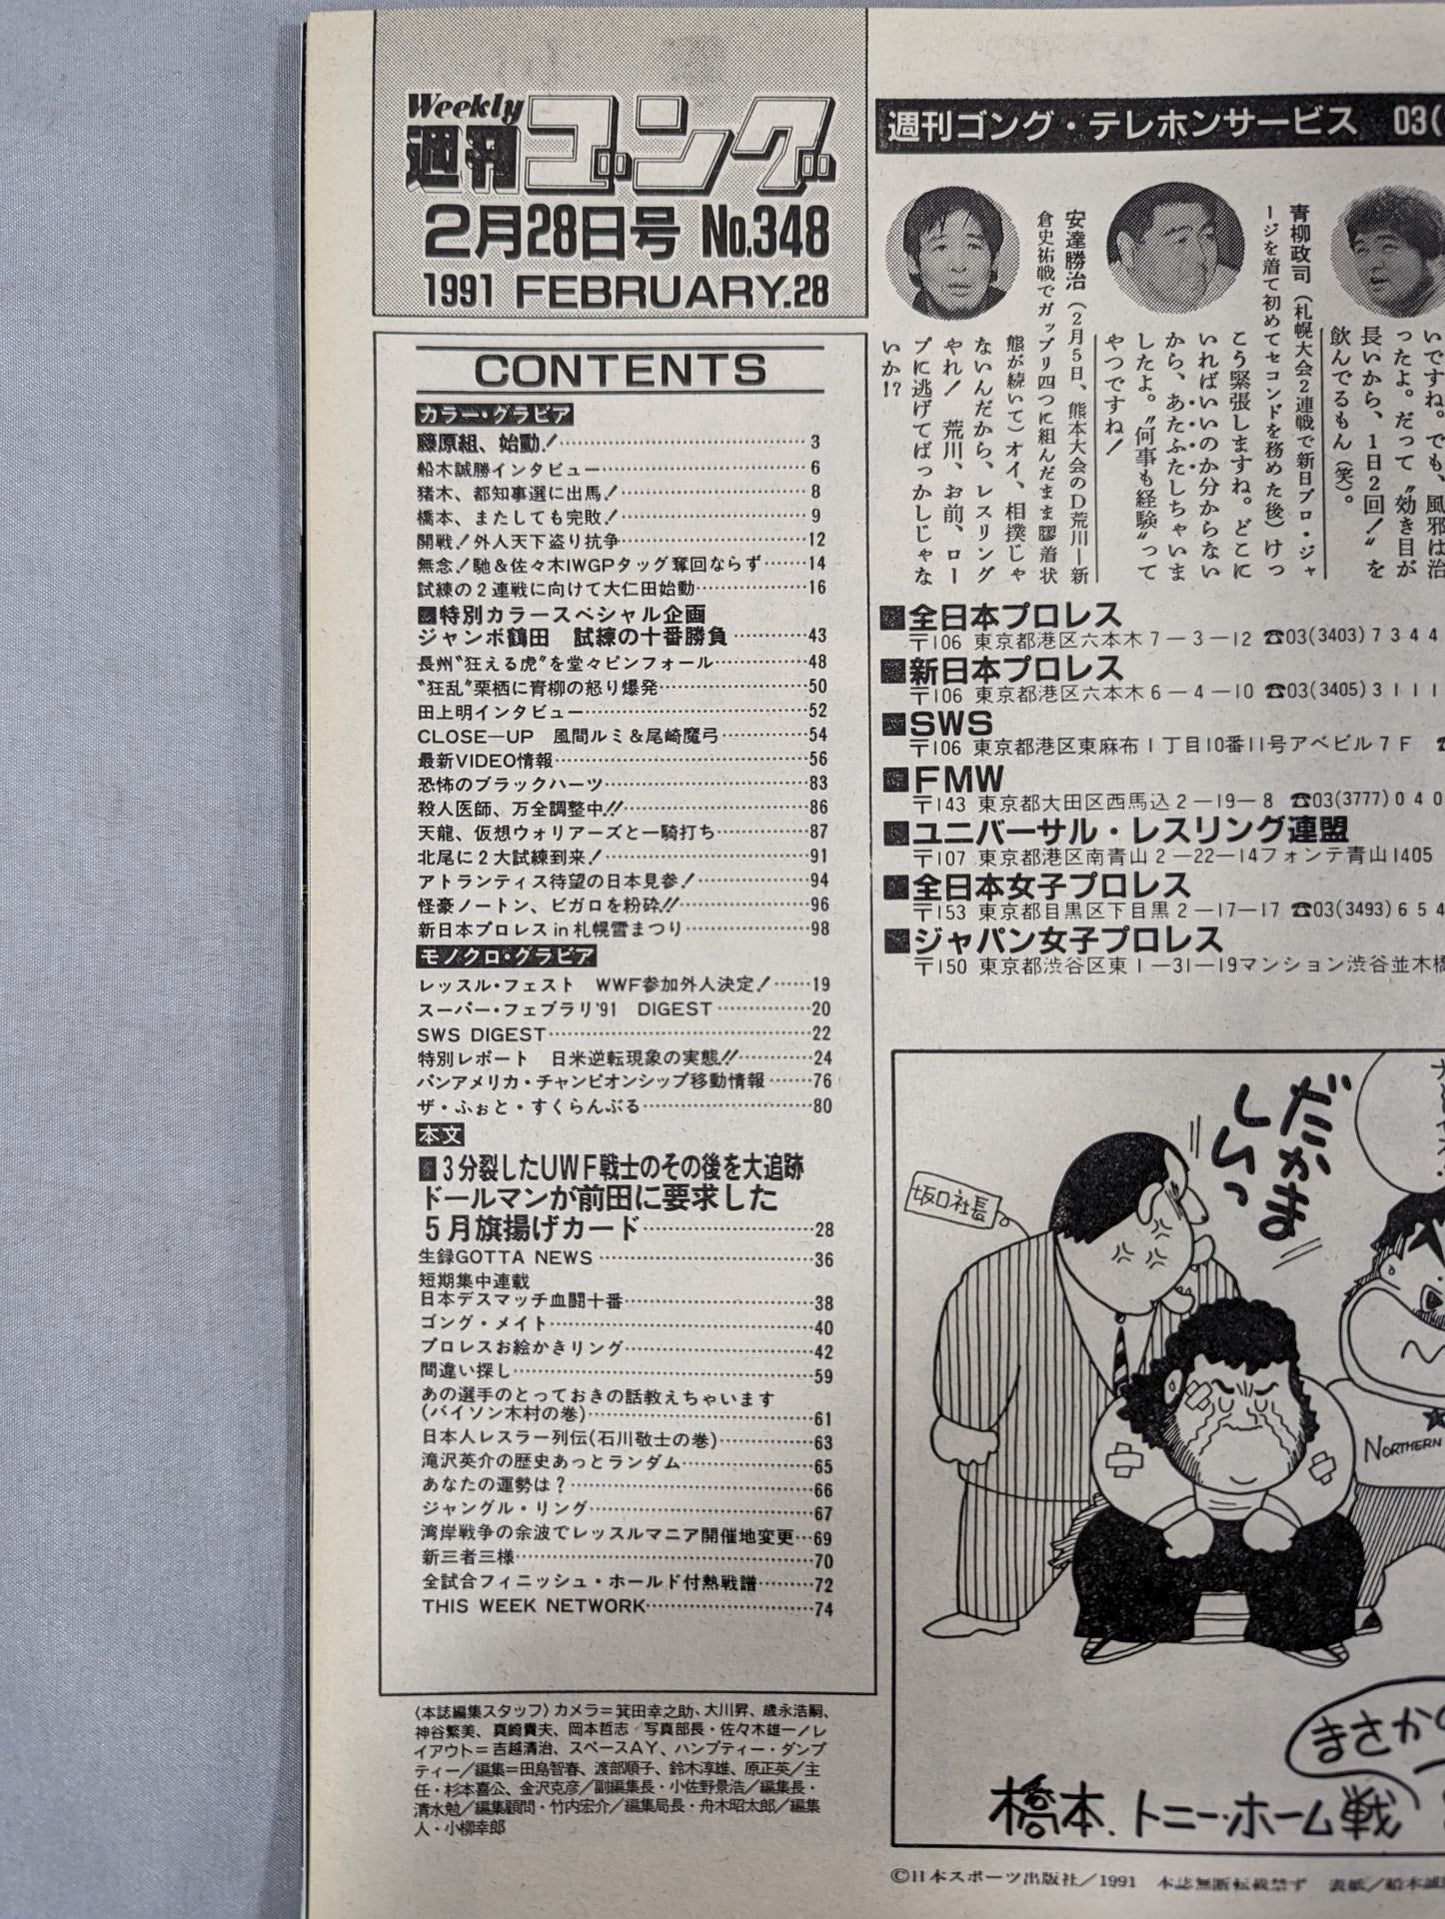 Weekly
週刊ゴング
2月28日号 No.348
1991 FEBRUARY.28
CONTENTS
カラー・グラビア
藤原組、始動!……3
船木誠勝インタビュー……6
猪木、都知事選に出馬!……8
橋本、またしても完敗!……9
開戦!外人天下盗り抗争……12
無念!馳&佐々木IWGPタッグ奪回ならず……14
試練の2連戦に向けて大仁田始動……16
特別カラースペシャル企画
ジャンボ鶴田 試練の十番勝負……43
長州〝狂える虎〟を堂々ピンフォール……48
〝狂乱〟栗栖に青柳の怒り爆発……50
田上明インタビュー……52
CLOSE—UP 風間ルミ&尾崎魔弓……54
最新VIDEO情報……56
恐怖のブラックハーツ……83
殺人医師、万全調整中!!……86
天龍、仮想ウォリアーズと一騎打ち……87
北尾に2大試練到来!……91
アトランティス待望の日本見参!……94
怪豪ノートン、ビガロを粉砕!!……96
新日本プロレスin札幌雪まつり……98
モノクロ・グラビア
レッスル・フェスト WWF参加外人決定!……19
スーパー・フェブラリ'91 DIGEST……20
SWS DIGEST……22
特別レポート 日米逆転現象の実態!!……24
パンアメリカ・チャンピオンシップ移動情報……76
ザ・ふぉと・すくらんぶる……80
本文
3分裂したUWF戦士のその後を大追跡
ドールマンが前田に要求した
5月旗揚げカード……28
生録GOTTA NEWS……36
短期集中連載
日本デスマッチ血闘十番……38
ゴング・メイト……40
プロレスお絵かきリング……42
間違い探し……59
あの選手のとっておきの話教えちゃいます
(バイソン木村の巻)……61
日本人レスラー列伝(石川敬士の巻)……63
滝沢英介の歴史あっとランダム……65
あなたの運勢は?……66
ジャングル・リング……67
湾岸戦争の余波でレッスルマニア開催地変更…69
新三者三様……70
全試合フィニッシュ・ホールド付熱戦譜……72
THIS WEEK NETWORK……74
〈本誌編集スタッフ〉カメラ=箕田幸之助、大川昇、歳永浩嗣、
神谷繁美、真崎貴夫、岡本哲志/写真部長・佐々木雄一/レ
イアウト=吉越清治、スペースAY、ハンプティー・ダンプ
ティー/編集=田島智春、渡部順子、鈴木淳雄、原正英/主
任・杉本喜公、金沢克彦/副編集長・小佐野景浩/編集長・
清水勉/編集顧問・竹内宏介/編集局長・舟木昭太郎/編集
人・小柳幸郎
週刊ゴング・テレホンサービス 03(
いですね。でも、風邪は治
ったよ。だって〝効き目が
長いから、1日2回!〟を
飲んでるもん(笑)。
青柳政司(札幌大会2連戦で新日プロ・ジャ
ージを着て初めてセコンドを務めた後)けっ
こう緊張しますね。どこに
いればいいのか分からない
から、あたふたしちゃいま
したよ。〝何事も経験〟って
やつですね!
安達勝治(2月5日、熊本大会のD荒川—新
倉史祐戦でガップリ四つに組んだまま膠着状
態が続いて)オイ、相撲じゃ
ないんだから、レスリング
やれ! 荒川、お前、ロー
プに逃げてばっかしじゃな
いか!?
■全日本プロレス
〒106 東京都港区六本木7—3—12 ☎03(3403)7344
■新日本プロレス
〒106 東京都港区六本木6—4—10 ☎03(3405)3111
■SWS
〒106 東京都港区東麻布1丁目10番11号アベビル7F ☎
■FMW
〒143 東京都大田区西馬込2—19—8 ☎03(3777)040
■ユニバーサル・レスリング連盟
〒107 東京都港区南青山2—22—14フォンテ青山1405
■全日本女子プロレス
〒153 東京都目黒区下目黒2—17—17 ☎03(3493)654
■ジャパン女子プロレス
〒150 東京都渋谷区東1—31—19マンション渋谷並木橋
だかま
しいっ
坂口社長
NORTHERN
まさかの
橋本、トニー・ホーム戦
©日本スポーツ出版社/1991 本誌無断転載禁ず 表紙/船木誠